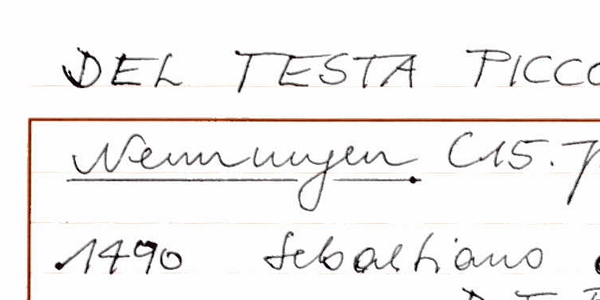 DEL TESTA PICCO
Nennungen C15.
1490 Sebastiano
D.T.P